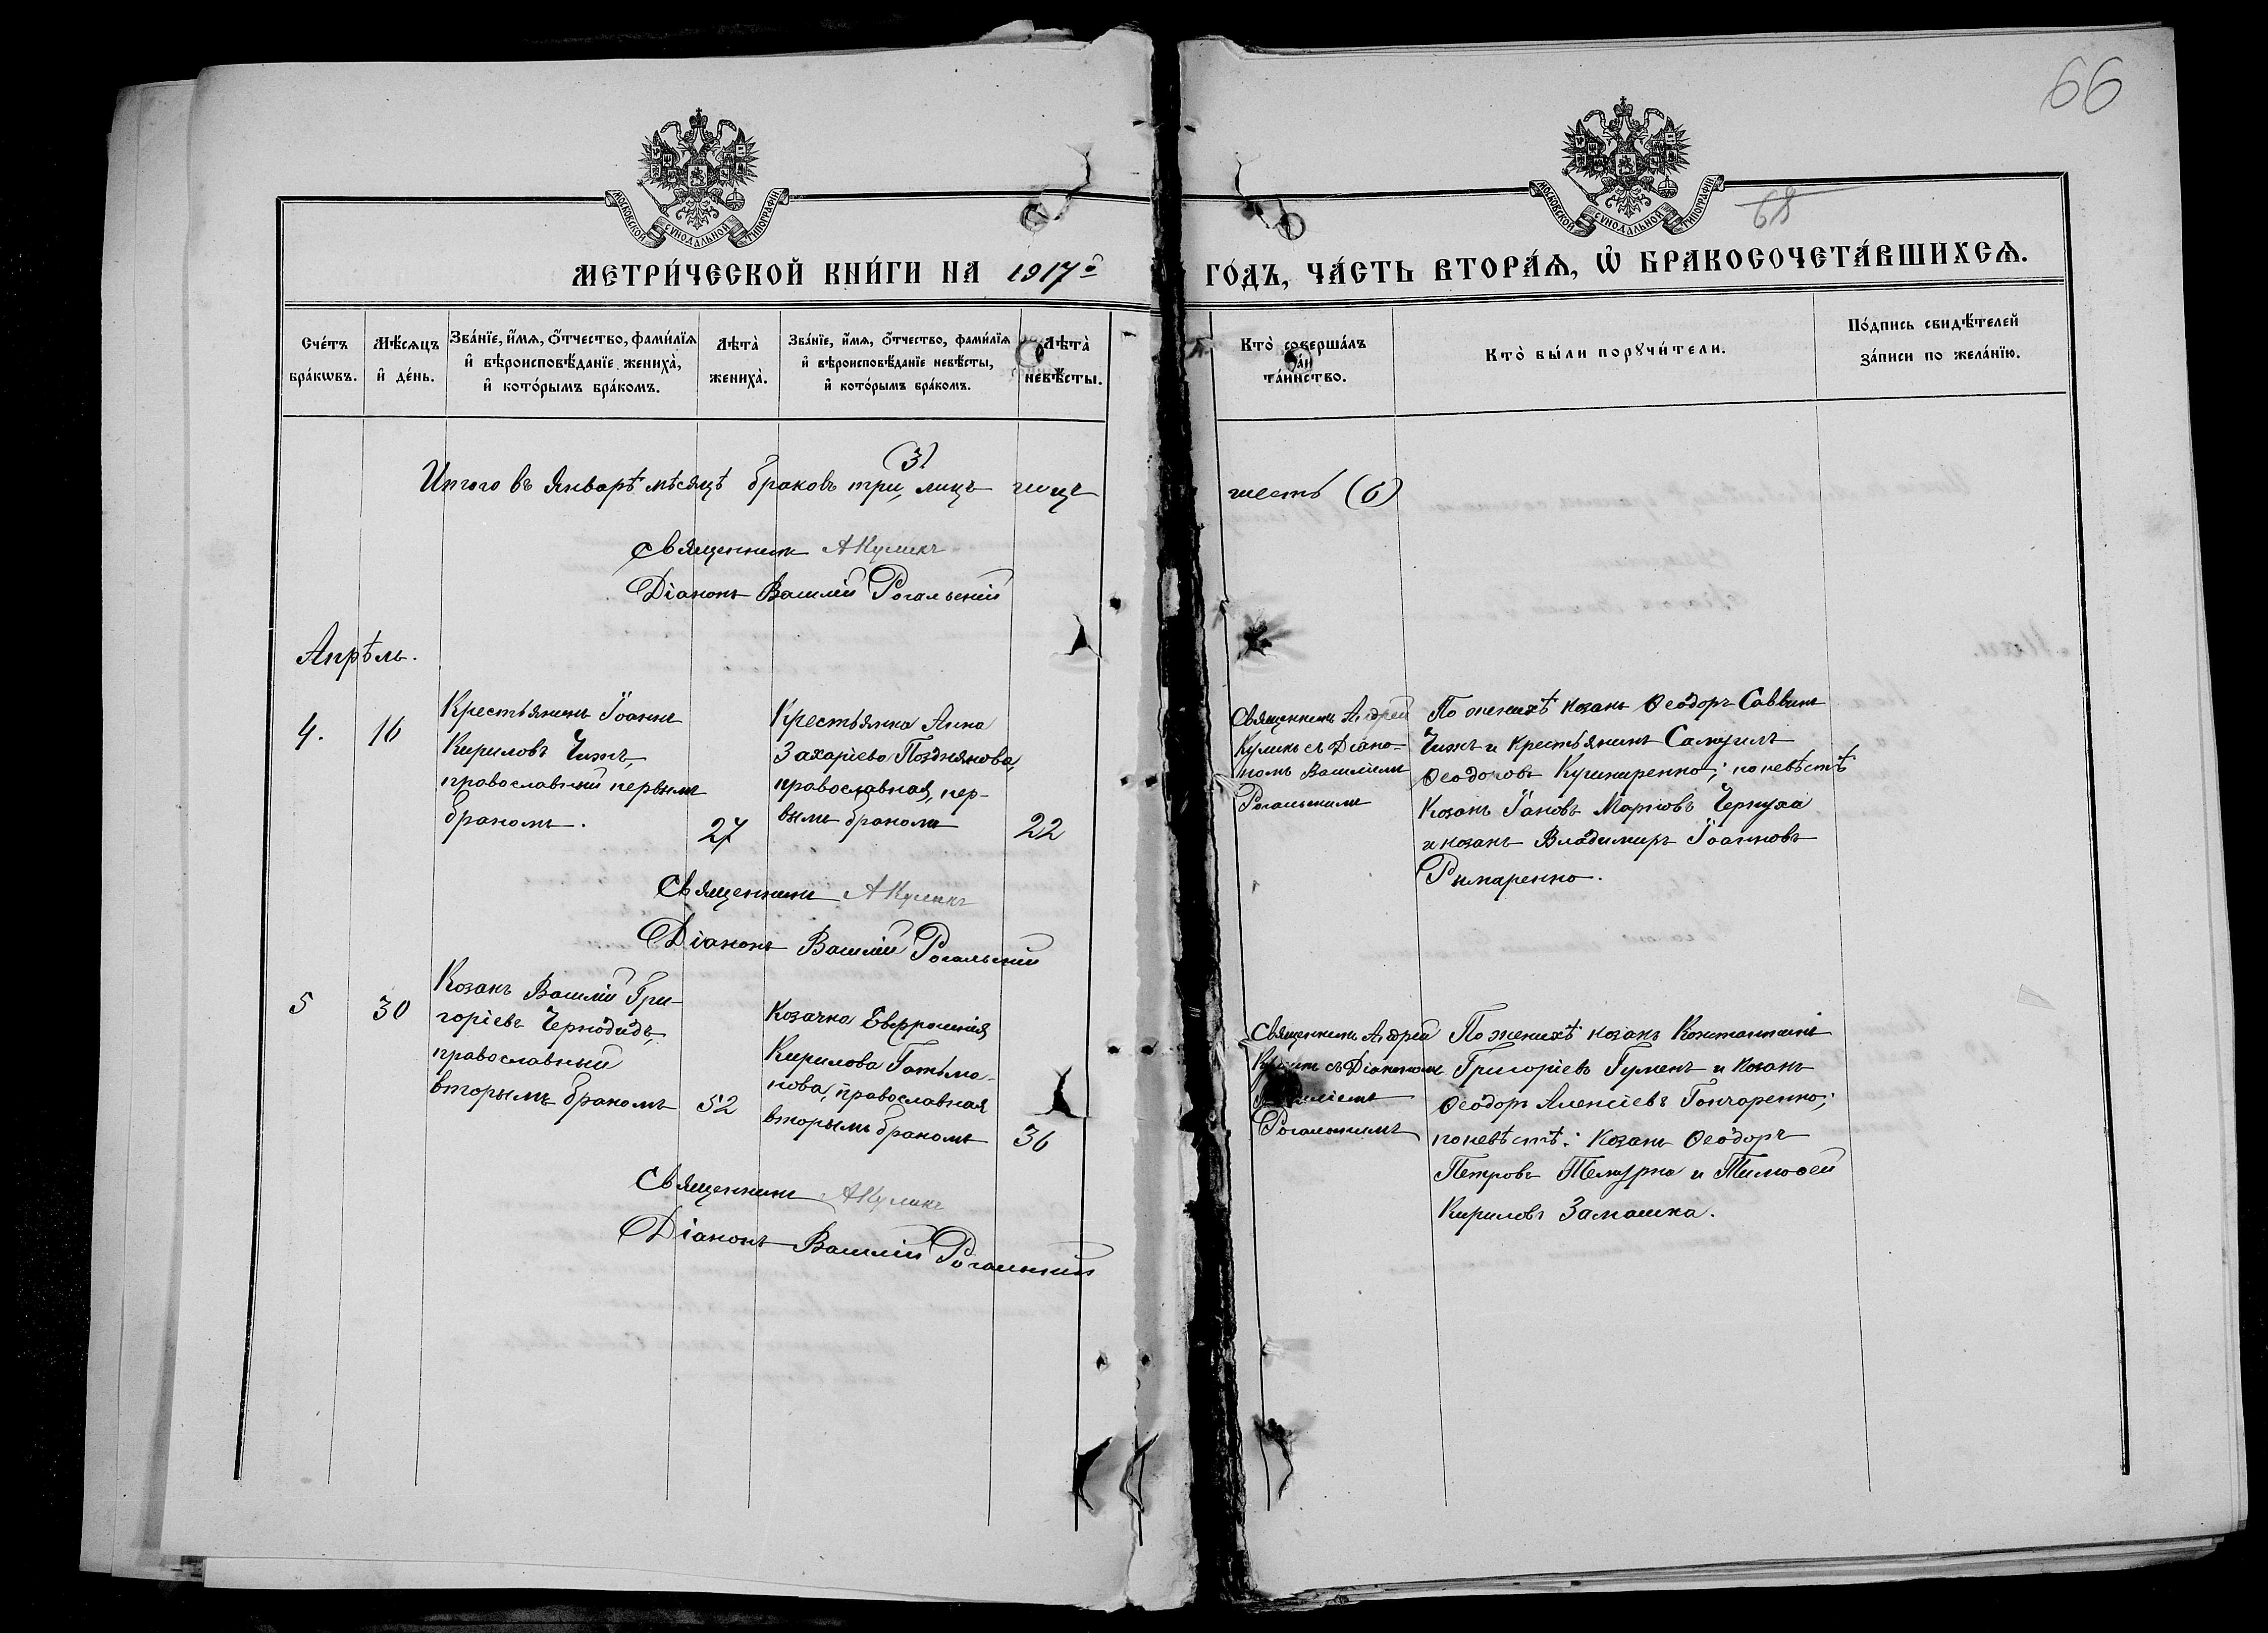 66
68
МОСКОВСКОЙ СѴНОДАЛЬНОЙ ТИПОГРАФІИ
МОСКОВСКОЙ СѴНОДАЛЬНОЙ ТИПОГРАФІИ
МЕТРИ́ЧЕСКОЙ КНИ́ГИ НА 1917о ГО́ДЪ, ЧА́СТЬ ВТОРА́Ѧ, Ѡ҆ БРАКОСОЧЕТА́ВШИХСѦ.
Сче́тъ бра́кѡвъ.
Мѣ́сяцъ и҆ де́нь.
Зва́нїе, и҆́мѧ, о҆́тчество, фами́лїѧ и҆ вѣроисповѣ́данїе жениха̀, и҆ кото́рымъ бра́комъ.
Лѣта̀ жениха̀.
Зва́нїе, и҆́мѧ, о҆́тчество, фами́лїѧ и҆ вѣроисповѣ́данїе невѣ́сты, и҆ кото́рымъ бра́комъ.
Лѣта̀ невѣ́сты.
Кто̀ соверша́лъ та́инство.
Кто̀ бы́ли порꙋчи́тели.
По́дпись свидѣ́телей за́писи по жела́нїю.
(3)
Итого въ Январѣ мѣсяцѣ браковъ три, лицъ шесть (6)
Священникъ АКуликъ
Діаконъ Василій Рогальскій
Апрѣль.
4.
16
Крестьянинъ Іоаннъ
Кириловъ Чижъ,
православный первымъ
бракомъ.
27
Крестьянка Анна
Захаріева Позднякова,
православная, пер-
вымъ бракомъ
22
Священникъ Андрей
Куликъ съ Діако-
номъ Василіемъ
Рогальскимъ
По женихѣ козакъ Ѳеодоръ Саввинъ
Чижъ и крестьянинъ Самуилъ
Ѳеодоровъ Кушниренко; по невѣстѣ
Козакъ Іаковъ Марковъ Чернуха
и козакъ Владимиръ Іоанновъ
Римаренко.
Священникъ АКуликъ
Діаконъ Василій Рогальскій
5
30
Козакъ Василій Гри-
горіевъ Чернодидъ,
православный
вторымъ бракомъ
52
Козачка Евфросинія
Кирилова Гатьма-
нова, православная
вторымъ бракомъ
36
Священникъ Андрей
Куликъ съ Діакономъ
Василіемъ
Рогальскимъ
По женихѣ козакъ Константинъ
Григоріевъ Гуменъ и козакъ
Ѳеодоръ Алексіевъ Гончаренко;
по невѣстѣ: Козакъ Ѳеодоръ
Петровъ и Тимоѳей
Кириловъ Замашка.
Священникъ АКуликъ
Діаконъ Василій Рогальскій